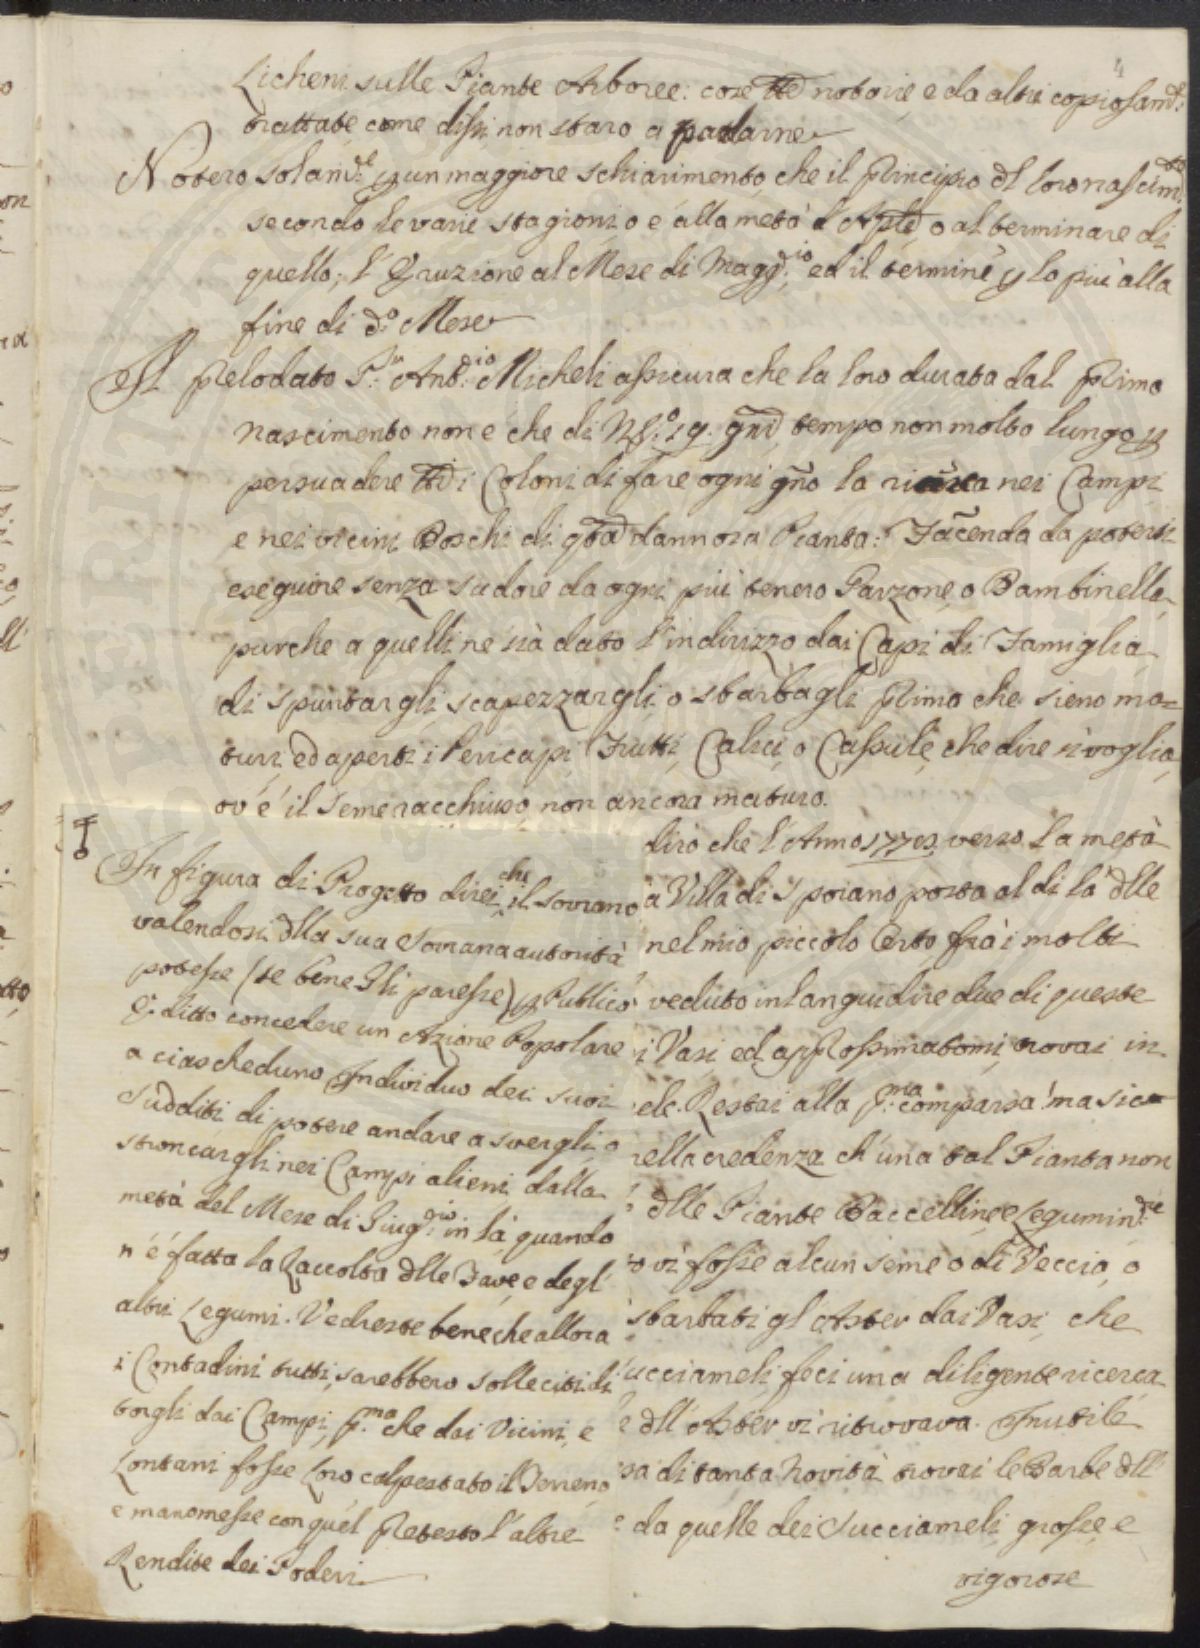 4
Licheni sulle Piante Arboree: cose tte notorie e da altri copiosam.te
trattate, come dissi, non starò a parlarne
Noterò solam.te p un maggiore schiarimento, che il Principio dl loro nascim.to
secondo le varie stagioni, o è alla metà d'Aple, o al terminare di
quello; l'Eruzione al Mese di Magg.io, ed il termine p lo più alla
fine di d.o Mese
Il Prelodato P.r Ant.io Micheli assicura che la loro durata dal Primo
nascimento non è che di N.o 19. gni, tempo non molto lungo p
persuadere tti i Coloni di fare ogni gno la ricerca nei Campi
e nei vicini Boschi di qta dannosa Pianta: Facenda da potersi
eseguire senza sudore da ogni più tenero Garzone, o Bambinella,
purche a quelli ne sia dato l'indirizzo dai Capi di Famiglia
di spuntargli, scapezzargli, o sbarbagli Primo che sieno ma=
turi, ed aperti i Pericapi, Frutti, Calici, o Cassule, che dire si voglia,
ov'é il Seme racchiuso, non ancora maturo.
In figura di Progetto direi che il Sovrano
valendosi dlla sua Sovrana autorità
potesse (se bene Gli paresse) p Publico
Editto concedere un Azione Popolare
a ciascheduno Individuo dei suoi
Sudditi di potere andare a svergli, o
stroncargli nei Campi alieni dalla
metà del Mese di Giug.io in là, quando
n'é fatta la Raccolta dlle Fave, e degl'
altri Legumi. Vedreste bene che allora
i Contadini tutti, sarebbero solleciti di
torgli dai Campi, p.ma che dai Vicini, e
Lontani fosse Loro calpestato il Terreno,
e manomesse con quel Pretesto l'altre
Rendite dei Poderi.
dirò che l'Anno 1772, verso la metà
a Villa di Spoiano posta al di là dlle
nel mio piccolo Orto, frà i molti
veduto inlanguidire due di queste
i Vasi, ed approssimatomi, trovai in
ele. Restai alla p.ma comparsa! ma sic
nella credenza ch'una tal Pianta non
dlle Piante Baccelline, e Legumin.se
o vi fosse alcun seme o di Veccia, o
sbarbati gl'Aster dai Vasi, che
ucciameli, feci una diligente ricerca
e dll'Aster vi ritrovava. Inutile
sa di tanta Novità trovai le Barbe dll'
da quelle dei Succiameli, grosse, e
vigorose